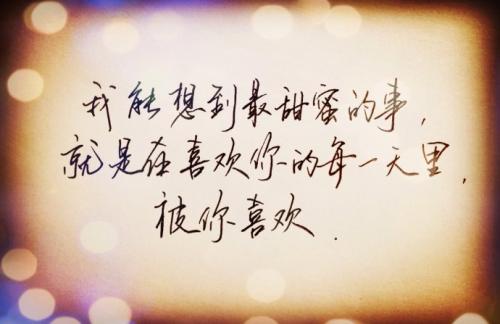 我能想到最甜蜜的事，
就是在喜欢你的每一天里，
被你喜欢．